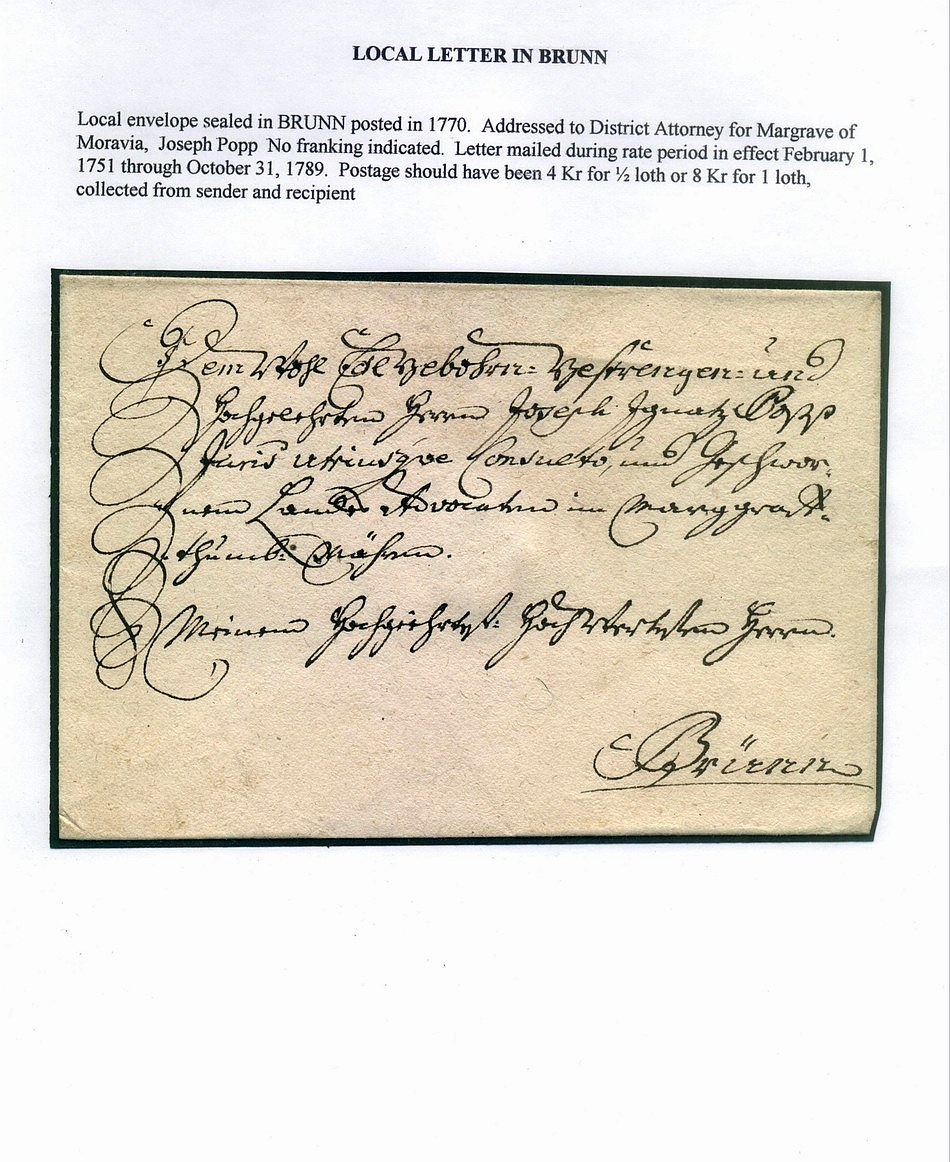 LOCAL LETTER IN BRUNN
Local envelope sealed in BRUNN posted in 1770. Addressed to District Attorney for Margrave of
Moravia, Joseph Popp No franking indicated. Letter mailed during rate period in effect February 1,
1751 through October 31, 1789. Postage should have been 4 Kr for ½ loth or 8 Kr for 1 loth,
collected from sender and recipient
Dem Wohl Edl Gebohrn= Gestrengen= und
Hochgelehrten Herrn Joseph Ignatz Popp
Juris utriusque Consulto, und Geschwor-
nem Landes Advocaten im Marggraff-
thumb: Mähren.
Meinem Hochgeehrtest: Herrn.
Brünn